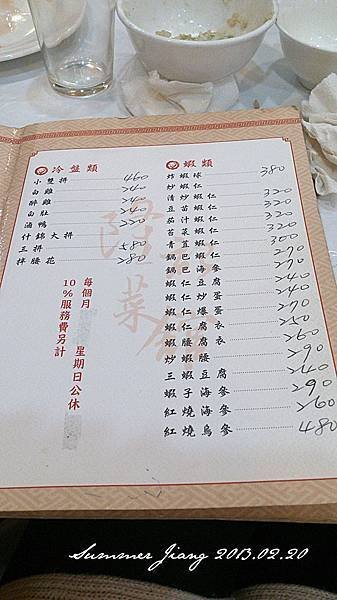 冷盤類
小雙拼 460
白雞 240
醉雞 240
白肚 240
滷鴨 220
什錦大拼
三拼 580
拌腰花 280
每個月 星期日公休
10%服務費另計
蝦類
炸蝦球 380
炒蝦仁
清炒蝦仁 320
豆苗蝦仁 320
茄汁蝦仁 320
苔菜蝦仁 320
青荳蝦仁 300
鍋巴蝦仁 270
鍋巴海參 270
蝦仁豆腐 240
蝦仁炒蛋 240
蝦仁爆蛋 270
蝦仁腐衣 250
蝦腰腐衣 260
炒蝦腰 290
三蝦豆腐 240
蝦子海參 290
紅燒海參 260
紅燒烏參 480
Summer Jiang 2013.02.20